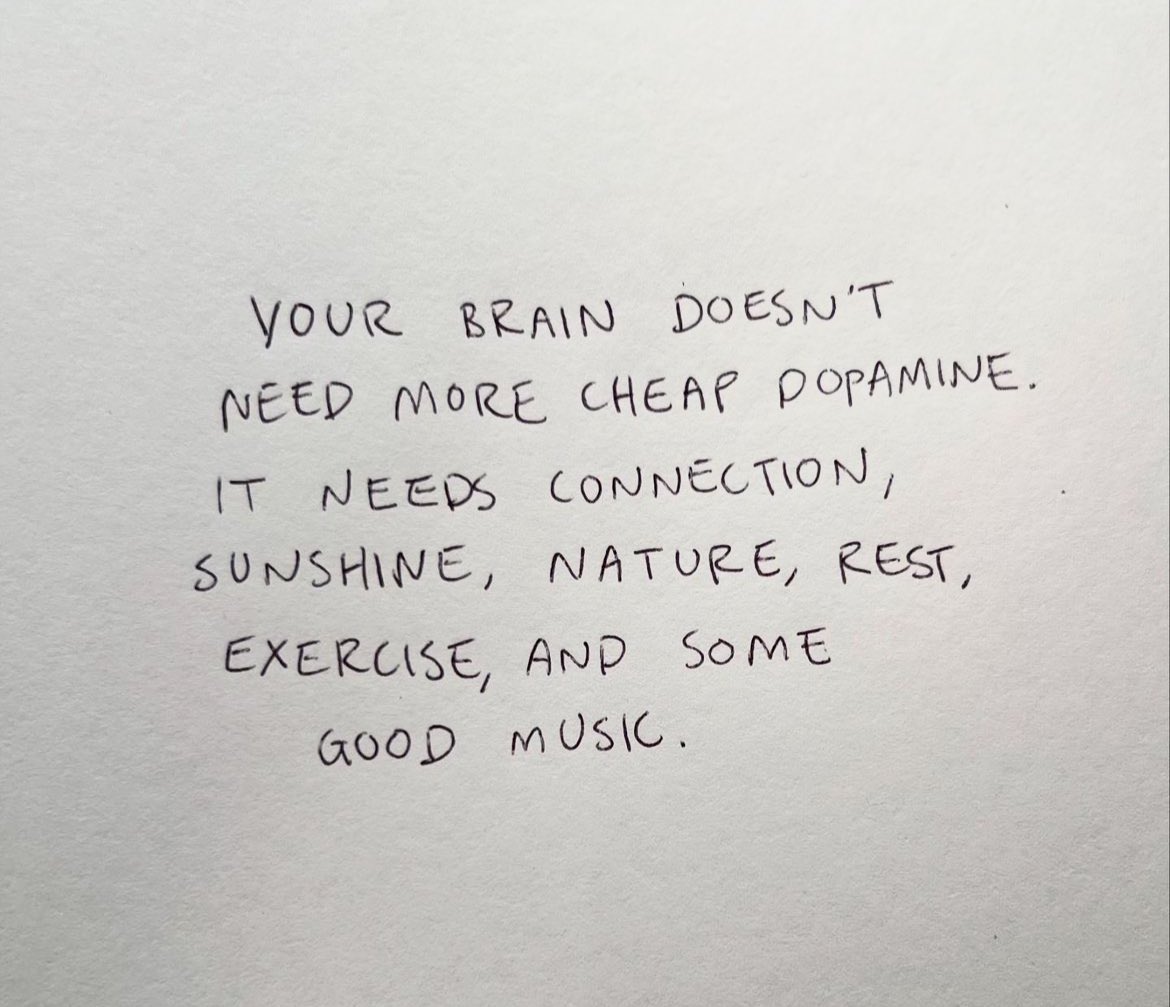 YOUR BRAIN DOESN'T
NEED MORE CHEAP DOPAMINE.
IT NEEDS CONNECTION,
SUNSHINE, NATURE, REST,
EXERCISE, AND SOME
GOOD MUSIC.